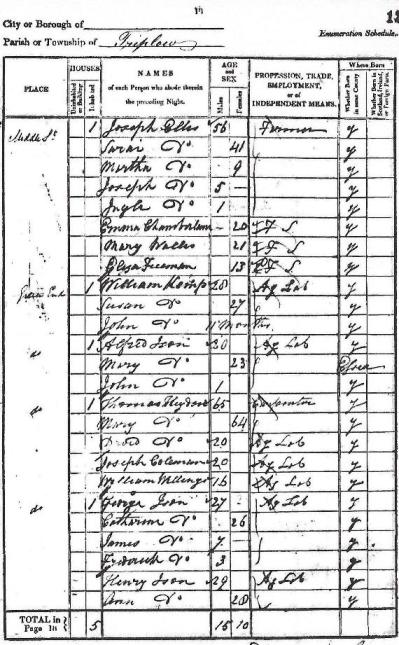 18
13
City or Borough of
Enumeration Schedule.
Parish or Township of Triplow
PLACE
HOUSES
Uninhabited or Building
Inhabited
NAMES
of each Person who abode therein the preceding Night.
AGE and SEX
Males
Females
PROFESSION, TRADE, EMPLOYMENT, or of INDEPENDENT MEANS.
Where Born
Whether Born in same County
Whether Born in Scotland, Ireland, or Foreign Parts.
Middle St 1 Joseph Ellis 56 Farmer y
Sarah Do 41 y
Martha Do 9 y
Joseph Do 5 y
Ingle Do 1 y
Emma Chamberlain 20 F S y
Mary Wallis 21 F S y
Eliza Freeman 13 F S y
Green End 1 William Kemp 28 Ag Lab y
Susan Do 27 y
John Do 11 Months y
do 1 Alfred Ison 30 Ag Lab y
Mary Do 23
John Do 1 y
do 1 Thomas Heydon 65 y
Mary Do 64 y
David Do 20 Ag Lab y
Joseph Coleman 20 Ag Lab y
William 16 Ag Lab y
do 1 George Ison 27 Ag Lab y
Catharine Do 26 y
James Do 7 y
Frederick Do 3 y
Henry Ison 29 Ag Lab y
Ann Do 28 y
TOTAL in Page 18 5 15 10